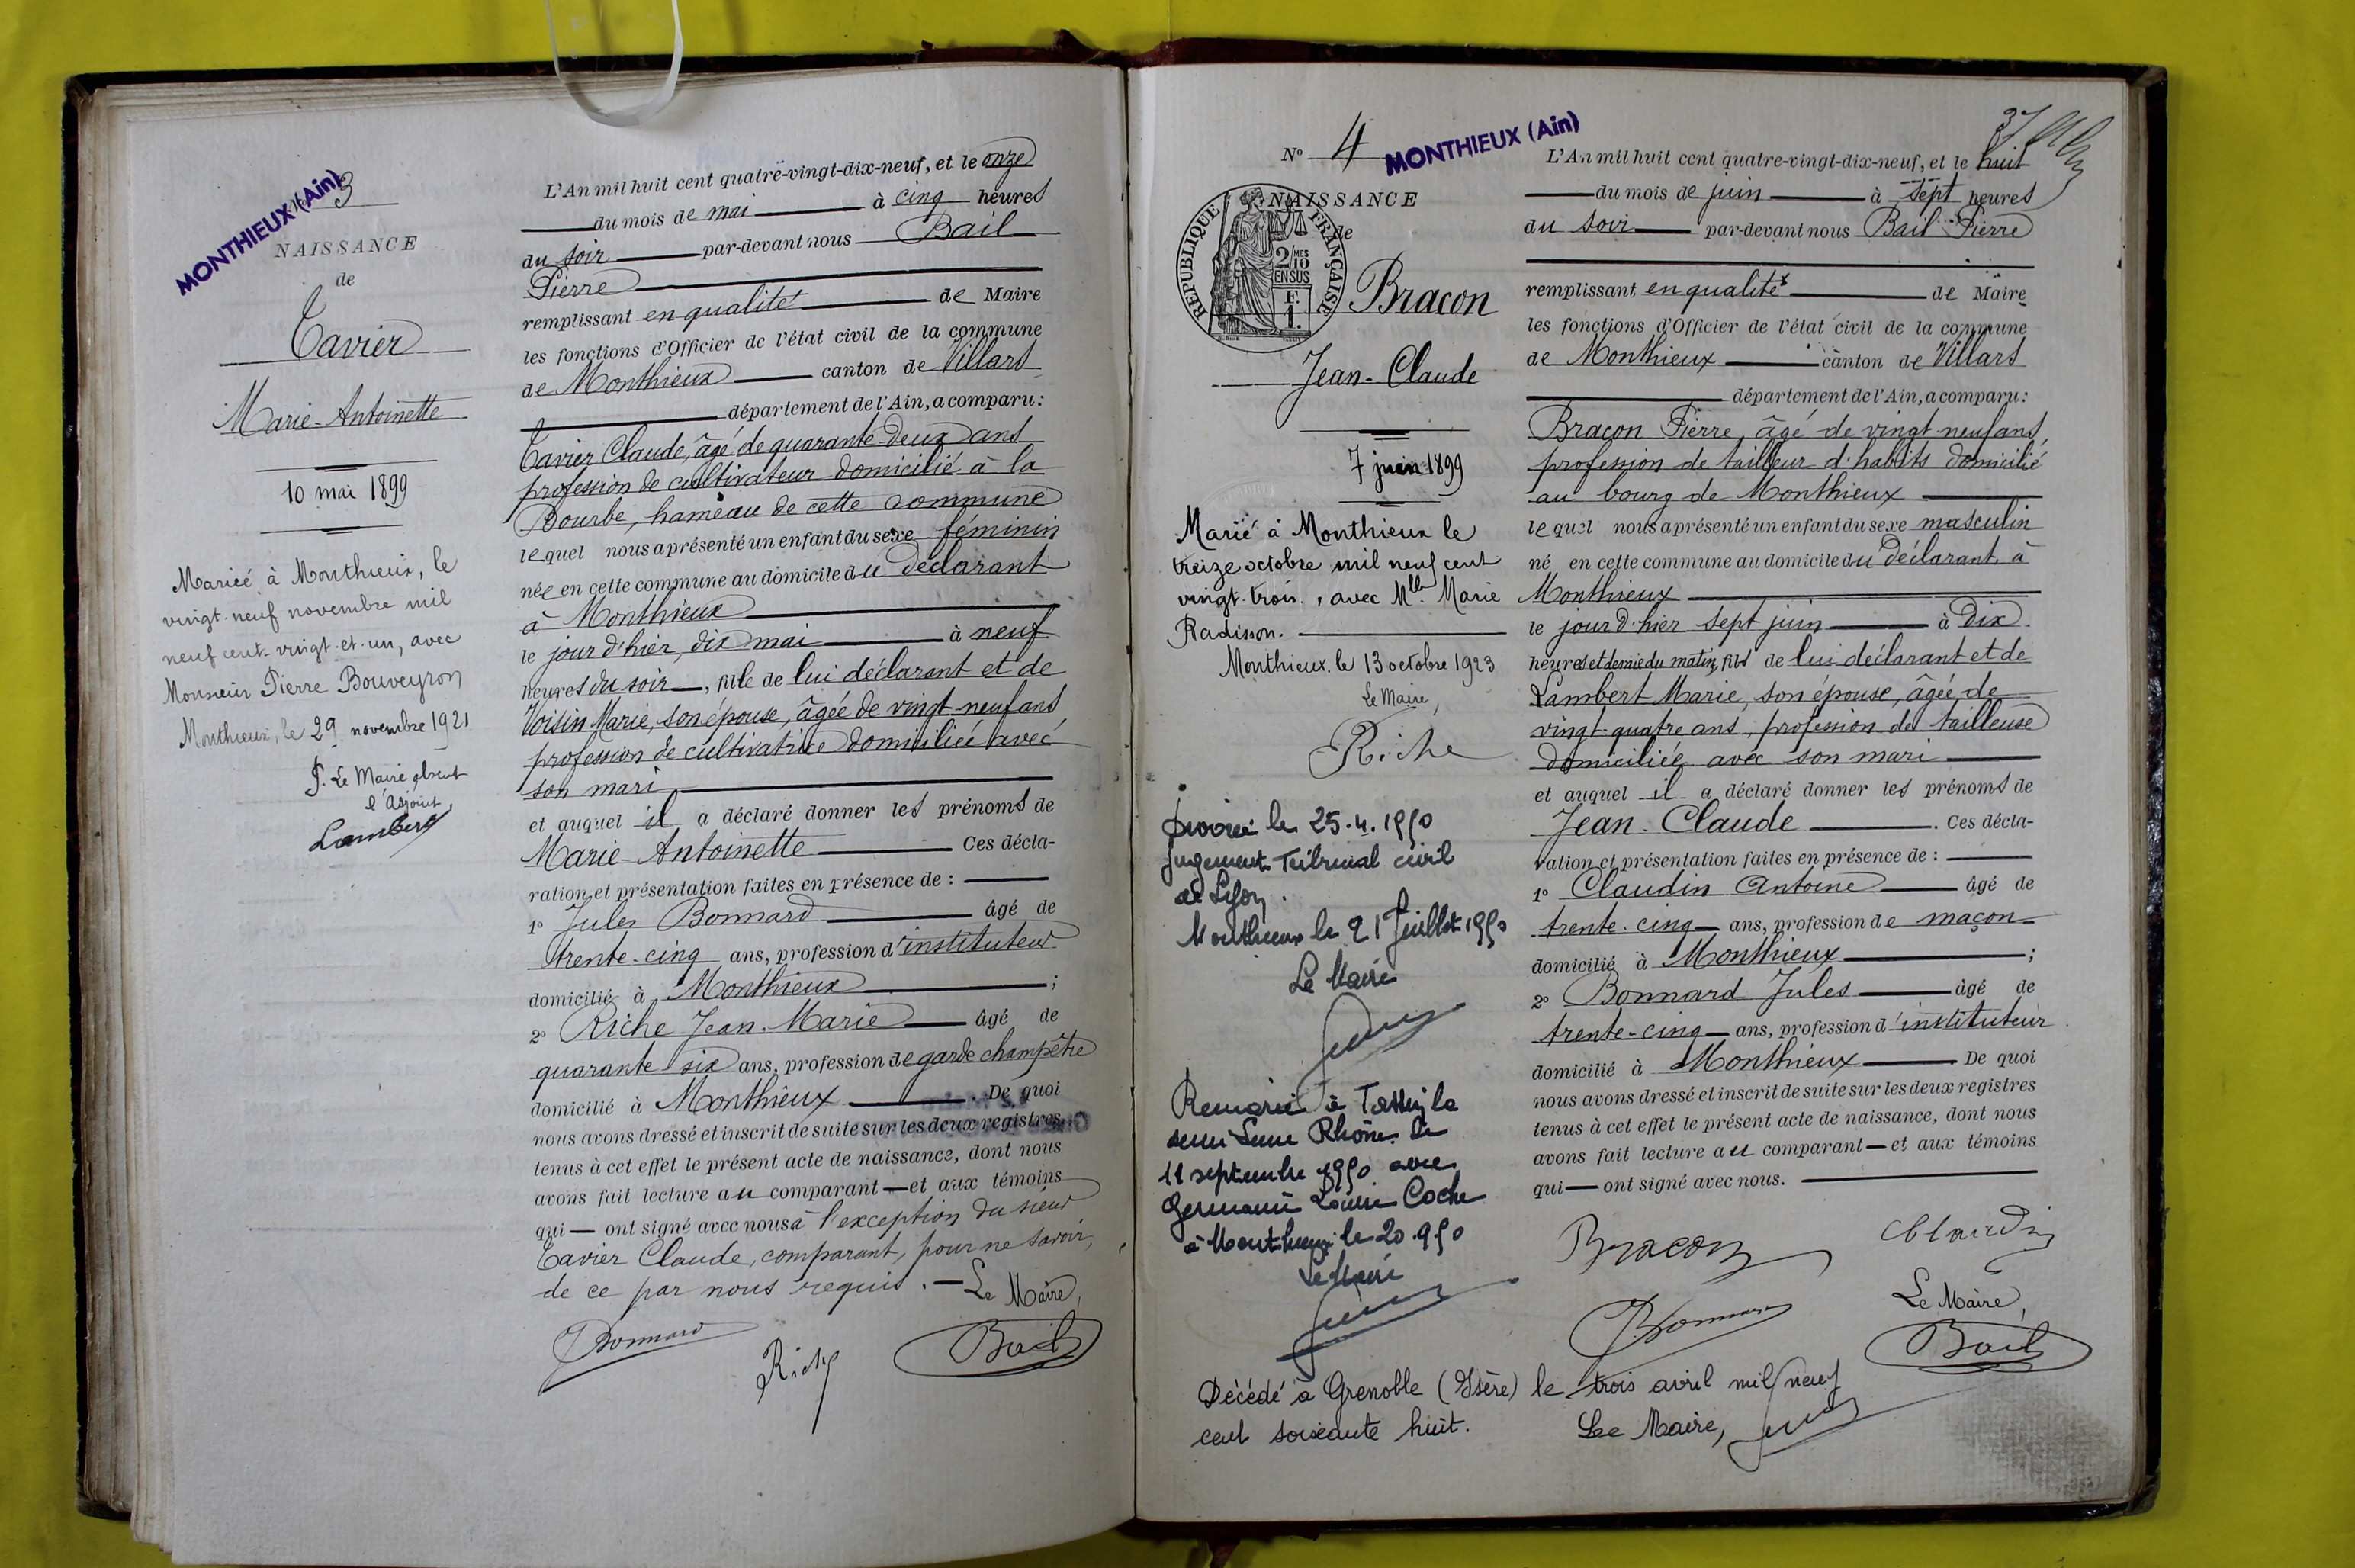 MONTHIEUX (Ain)
N° 3
NAISSANCE
de
Tavier
Marie-Antoinette
10 mai 1899
Mariée à Monthieux, le
vingt-neuf novembre mil
neuf cent-vingt-et-un, avec
Monsieur Pierre Bouveyron
Monthieux, le 29 novembre 1921
P. Le Maire absent
l'Adjoint
Lambert
L'An mil huit cent quatre-vingt-dix-neuf, et le onze
du mois de mai à cinq heures
du soir par-devant nous Bail
Pierre
remplissant en qualité de Maire
les fonctions d'Officier de l'état civil de la commune
de Monthieux canton de Villars
département de l'Ain, a comparu:
Tavier Claude, âgé de quarante-deux ans
profession de cultivateur domicilié à la
Bourbe, hameau de cette commune
lequel nous a présenté un enfant du sexe féminin
née en cette commune au domicile du déclarant
à Monthieux
le jour d'hier, dix mai à neuf
heures du soir, fille de lui déclarant et de
Voisin Marie, son épouse, âgée de vingt-neuf ans,
profession de cultivatrice domiciliée avec
son mari
et auquel il a déclaré donner les prénoms de
Marie-Antoinette Ces décla-
ration et présentation faites en présence de :
1° Jules Bonnard âgé de
trente-cinq ans, profession d'instituteur
domicilié à Monthieux ;
2° Riche Jean-Marie âgé de
quarante six ans, profession de garde champêtre
domicilié à Monthieux . De quoi
nous avons dressé et inscrit de suite sur les deux registres
tenus à cet effet le présent acte de naissance, dont nous
avons fait lecture au comparant — et aux témoins
qui — ont signé avec nous à l'exception du sieur
Tavier Claude, comparant, pour ne savoir,
de ce par nous requis. — Le Maire,
JBonnard
Riche
Bail
N° 4
MONTHIEUX (Ain)
NAISSANCE
de
REPUBLIQUE FRANÇAISE
2/10 MES
EN SUS
F.
1.
Bracon
Jean-Claude
7 juin 1899
Marié à Monthieux le
treize octobre mil neuf cent
vingt-trois, avec Mlle Marie
Radisson.
Monthieux, le 13 octobre 1923
Le Maire,
Riche
Divorcé le 25.4.1950
jugement Tribunal civil
de Lyon.
Monthieux le 21 Juillet 1950
Le Maire
Remarié à Tassin la
demi Lune Rhône le
11 septembre 1950 avec
Germaine Louise Coche
à Monthieux le 20.9.50
Le Maire
37
L'An mil huit cent quatre-vingt-dix-neuf, et le huit
du mois de juin à sept heures
du soir par-devant nous Bail Pierre
remplissant en qualité de Maire
les fonctions d'Officier de l'état civil de la commune
de Monthieux canton de Villars
département de l'Ain, a comparu:
Bracon Pierre, âgé de vingt-neuf ans,
profession de tailleur d'habits domicilié
au bourg de Monthieux
lequel nous a présenté un enfant du sexe masculin
né en cette commune au domicile du déclarant, à
Monthieux
le jour d'hier sept juin à dix
heures et demie du matin, fils de lui déclarant et de
Lambert Marie, son épouse, âgée de
vingt-quatre ans, profession de tailleuse
domiciliée avec son mari
et auquel il a déclaré donner les prénoms de
Jean-Claude . Ces décla-
ration et présentation faites en présence de :
1° Claudin Antoine âgé de
trente-cinq ans, profession de maçon
domicilié à Monthieux ;
2° Bonnard Jules âgé de
trente-cinq ans, profession d'instituteur
domicilié à Monthieux De quoi
nous avons dressé et inscrit de suite sur les deux registres
tenus à cet effet le présent acte de naissance, dont nous
avons fait lecture au comparant — et aux témoins
qui — ont signé avec nous.
Bracon
Claudin
JBonnard
Le Maire,
Bail
Décédé à Grenoble (Isère) le trois avril mil neuf
cent soixante huit.
Le Maire,